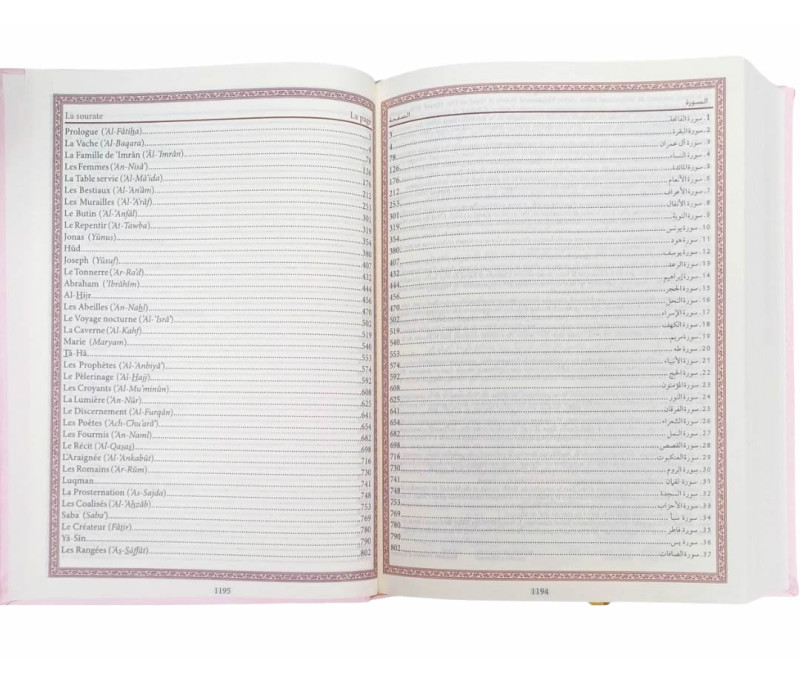 La sourate La page
Prologue (‘Al-Fâtiḥa)
La Vache (‘Al-Baqara)
La Famille de ‘Imrân (‘Âl-‘Imrân) 78
Les Femmes (‘An-Nisâ’) 126
La Table servie (‘Al-Mâ’ida) 176
Les Bestiaux (‘Al-‘An‘âm) 212
Les Murailles (‘Al-‘A‘râf) 253
Le Butin (‘Al-‘Anfâl) 301
Le Repentir (‘At-Tawba) 319
Jonas (Yûnus) 354
Hûd 380
Joseph (Yûsuf) 407
Le Tonnerre (‘Ar-Ra‘d) 432
Abraham (‘Ibrâhîm) 444
Al-Ḥijr 456
Les Abeilles (‘An-Naḥl) 470
Le Voyage nocturne (‘Al-‘Isrâ’) 502
La Caverne (‘Al-Kahf) 519
Marie (Maryam) 540
Ṭâ-Hâ 553
Les Prophètes (‘Al-Anbiyâ’) 574
Le Pèlerinage (‘Al-Ḥajj) 592
Les Croyants (‘Al-Mu’minûn) 608
La Lumière (‘An-Nûr) 625
Le Discernement (‘Al-Furqân) 641
Les Poètes (‘Ach-Chu‘arâ’) 654
Les Fourmis (‘An-Naml) 682
Le Récit (‘Al-Qaṣaṣ) 698
L’Araignée (‘Al-‘Ankabût) 716
Les Romains (‘Ar-Rûm) 730
Luqman 741
La Prosternation (‘As-Sajda) 748
Les Coalisés (‘Al-‘Aḥzâb) 753
Saba (Saba’) 769
Le Créateur (Fâṭir) 780
Yâ-Sîn 790
Les Rangées (‘Aṣ-Ṣâffât) 802
1195
السورة الصفحة
1. سورة الفاتحة
2. سورة البقرة 3
3. سورة آل عمران 78
4. سورة النساء 126
5. سورة المائدة 176
6. سورة الأنعام 212
7. سورة الأعراف 253
8. سورة الأنفال 301
9. سورة التوبة 319
10. سورة يونس 354
11. سورة هود 380
12. سورة يوسف 407
13. سورة الرعد 432
14. سورة إبراهيم 444
15. سورة الحجر 456
16. سورة النحل 470
17. سورة الإسراء 502
18. سورة الكهف 519
19. سورة مريم 540
20. سورة طه 553
21. سورة الأنبياء 574
22. سورة الحج 592
23. سورة المؤمنون 608
24. سورة النور 625
25. سورة الفرقان 641
26. سورة الشعراء 654
27. سورة النمل 682
28. سورة القصص 698
29. سورة العنكبوت 716
30. سورة الروم 730
31. سورة لقمان 741
32. سورة السجدة 748
33. سورة الأحزاب 753
34. سورة سبأ 769
35. سورة فاطر 780
36. سورة يس 790
37. سورة الصافات 802
1194